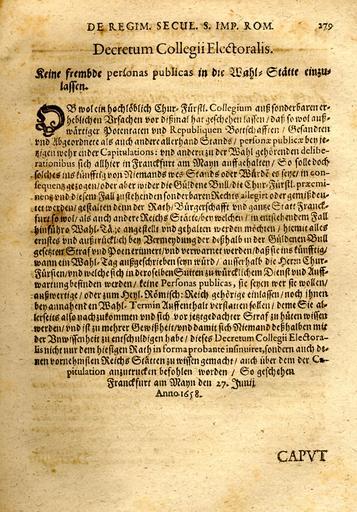 DE REGIM. SECUL. S. IMP. ROM. 279
Decretum Collegii Electoralis.
Keine frembde personas publicas in die Wahl-Stätte einzu-
lassen.
OB wol ein hochlöblich Chur-Fürstl. Collegium auß sonderbaren er-
heblichen Ursachen vor dißmal hat geschehen lassen / daß so wol auß-
wärtiger Potentaten und Republiquen Bottschafften / Gesandten
und Abgeordnete als auch andere allerhand Stands / personæ publicæ bey je-
tzigen wehrender Capitulations- und anderen zu der Wahl gehörenden delibe-
rationibus sich allhier in Franckfurt am Mayn auffgehalten / So solle doch
solches ins künfftig von Niemands wes Stands oder Würde es seye / in con-
sequenz gezogen / oder aber wider die Güldene Bull die Chur-Fürstl. præemi-
nenz und diesem Fall zustehenden sonderbaren Rechts allegirt oder gemißdeu-
tet werden / gestalten denn der Rath / Bürgerschafft und gantze Statt Franck-
furt so wol / als auch andere Reichs Stätte / bey welchen / in entstehendem Fall
hinführo Wahl-Täge angestellt und gehalten werden möchten / hiemit alles
ernstes und außtrücklich bey Vermeydung der deßhalb in der Güldenen Bull
gesetzter Straf und Poen erinnert / und verwarnet werden / daß sie ins künfftig /
wann ein Wahl-Tag außgeschrieben seyn würd / ausserhalb die Herrn Chur-
Fürsten / und welche sich in deroselben Suiten zu würcklichem Dienst und Auff-
wartung befinden werden / keine Personas publicas, sie seyen wer sie wollen /
außwertige / oder zum Heyl. Römisch: Reich gehörige einlassen / noch ihnen
bey annahenden Wahl-Termin Auffenthalt verstatten sollen / deme Sie al-
lerseits also nachzukommen und sich vor jetzgedachter Straf zu hüten wissen
werden / und ist zu mehrer Gewißheit / und damit sich Niemand deßhalben mit
der Unwissenheit zu entschuldigen habe / dieses Decretum Collegii Electora-
lis nicht nur dem hiesigen Rath in forma probante insinuiret, sondern auch de-
nen vornehmsten Reichs Stätten zu wissen gemacht / auch über dem der Ca-
pitulation anzutrucken befohlen worden / So geschehen
Franckfurt am Mayn den 27. Junij
Anno 1658.
CAPVT